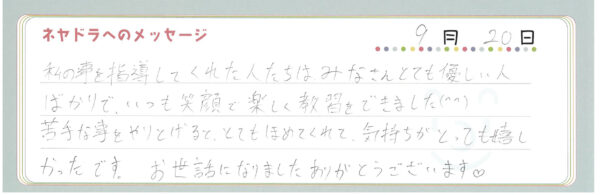 ネヤドラへのメッセージ 9月20日
私の事を指導してくれた人たちは、みなさんとても優しい人
ばかりで、いつも笑顔で楽しく教習をできました(^^)
苦手な事をやりとげると、とてもほめてくれて、気持ちがとっても嬉し
かったです。 お世話になりましたありがとうございます♡